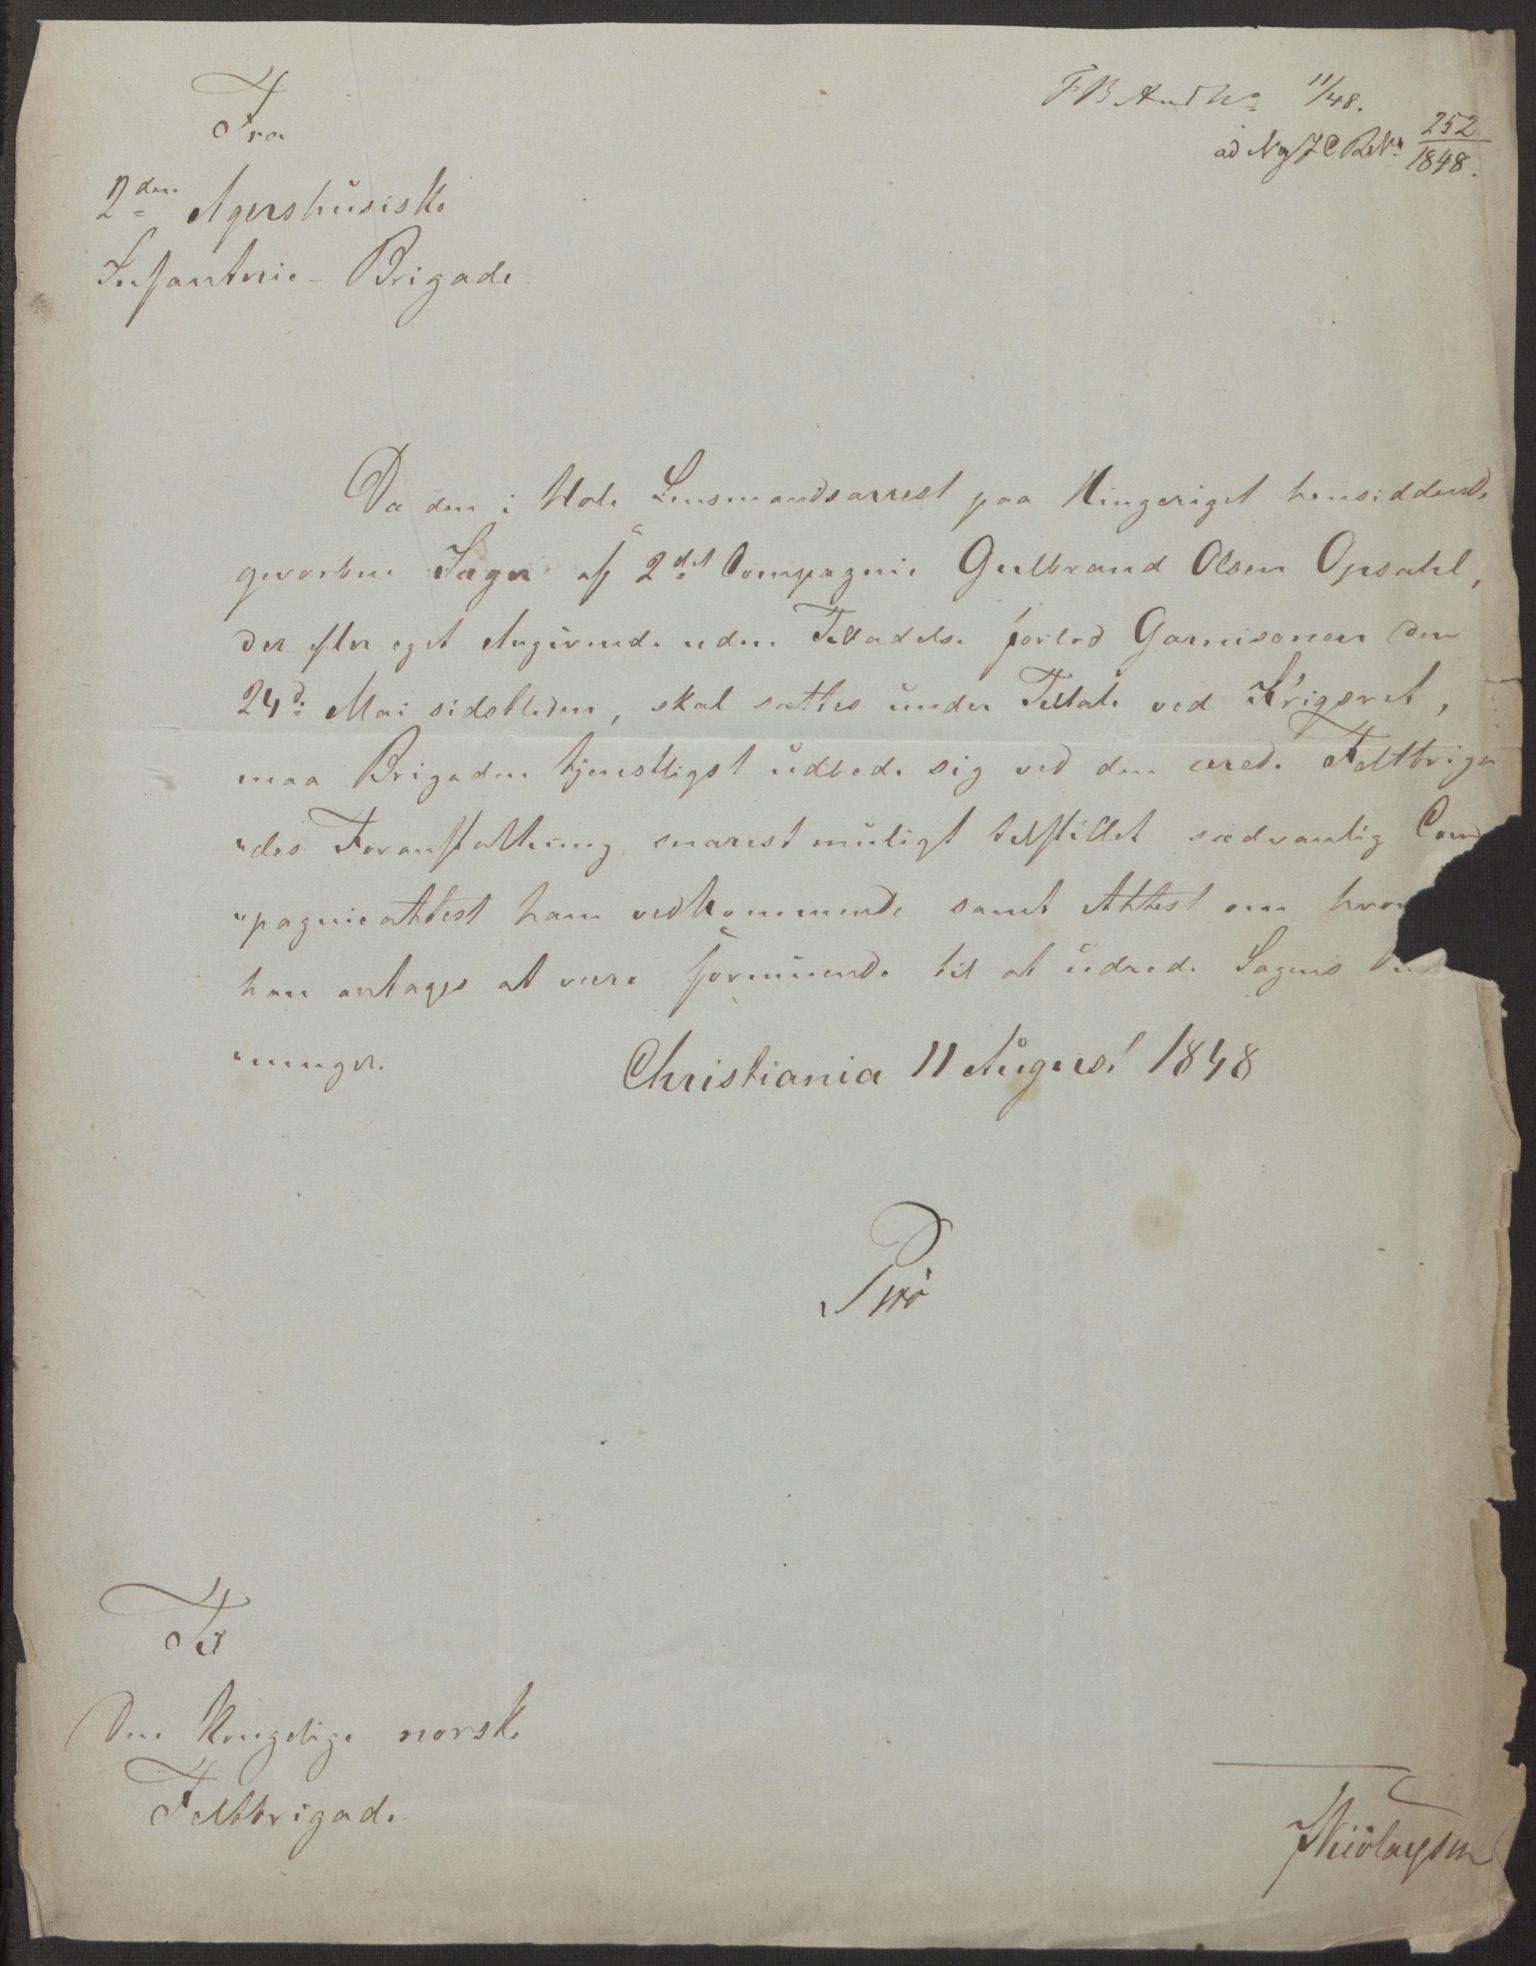 Fra
2den Agershusiske
Infanterie-Brigade
11/48.
252
ad No
1848.
Da den i Hole Lensmandsarrest paa Ringeriget hensiddende
gevorbne Jæger af 2det Compagnie Gulbrand Olsen Opsahl,
der efter eget Angivende uden Tilladelse forlod Garnisonen den
24d: Mai sidstleden, skal sættes under Tiltale ved Krigsret,
maa Brigaden tjenstligst udbede sig ved den ærede Feltbriga
"des Foranstaltning snarest muligt tilstillet sædvanlig Com
"pagnieattest ham vedkommende samt Attest om hvor
han antages at være formuende til at udrede Sagens
"ninger.
Christiania 11 August 1848
Til
Den Kongelige norske
Feltbrigade
Nicolaysen